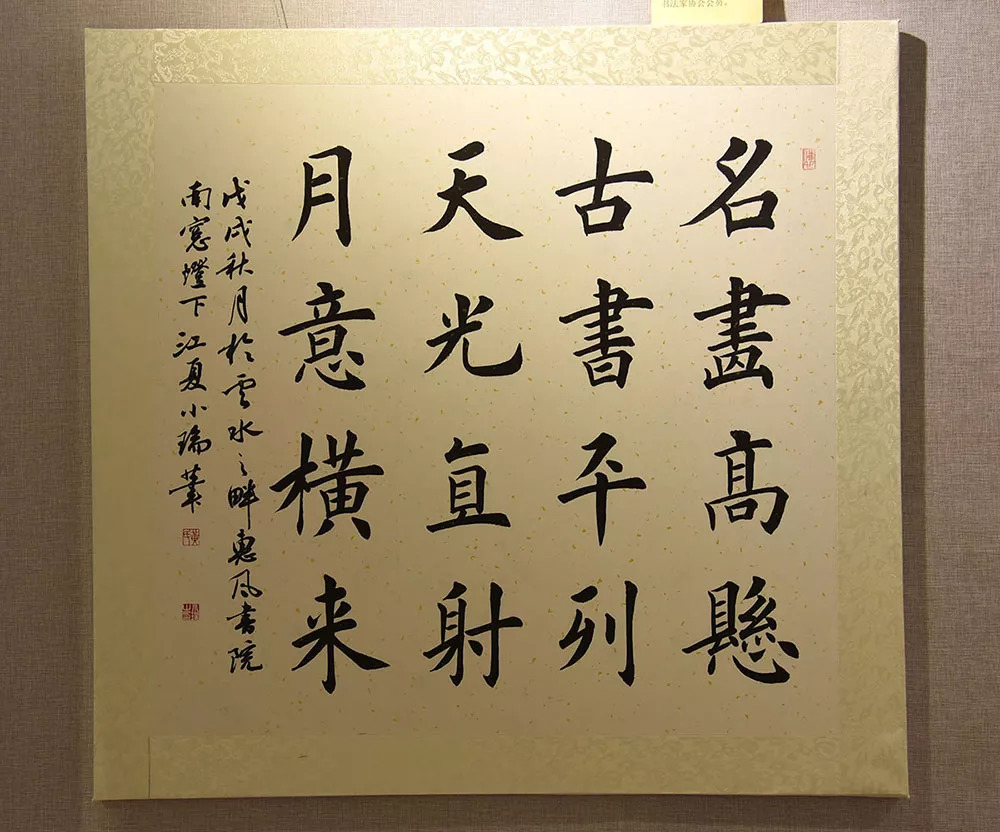 书法家协会会员。
名畫高懸
古書平列
天光直射
月意横来
戊戌秋月於雲水之畔惠风書院
南窓燈下江夏小瑞